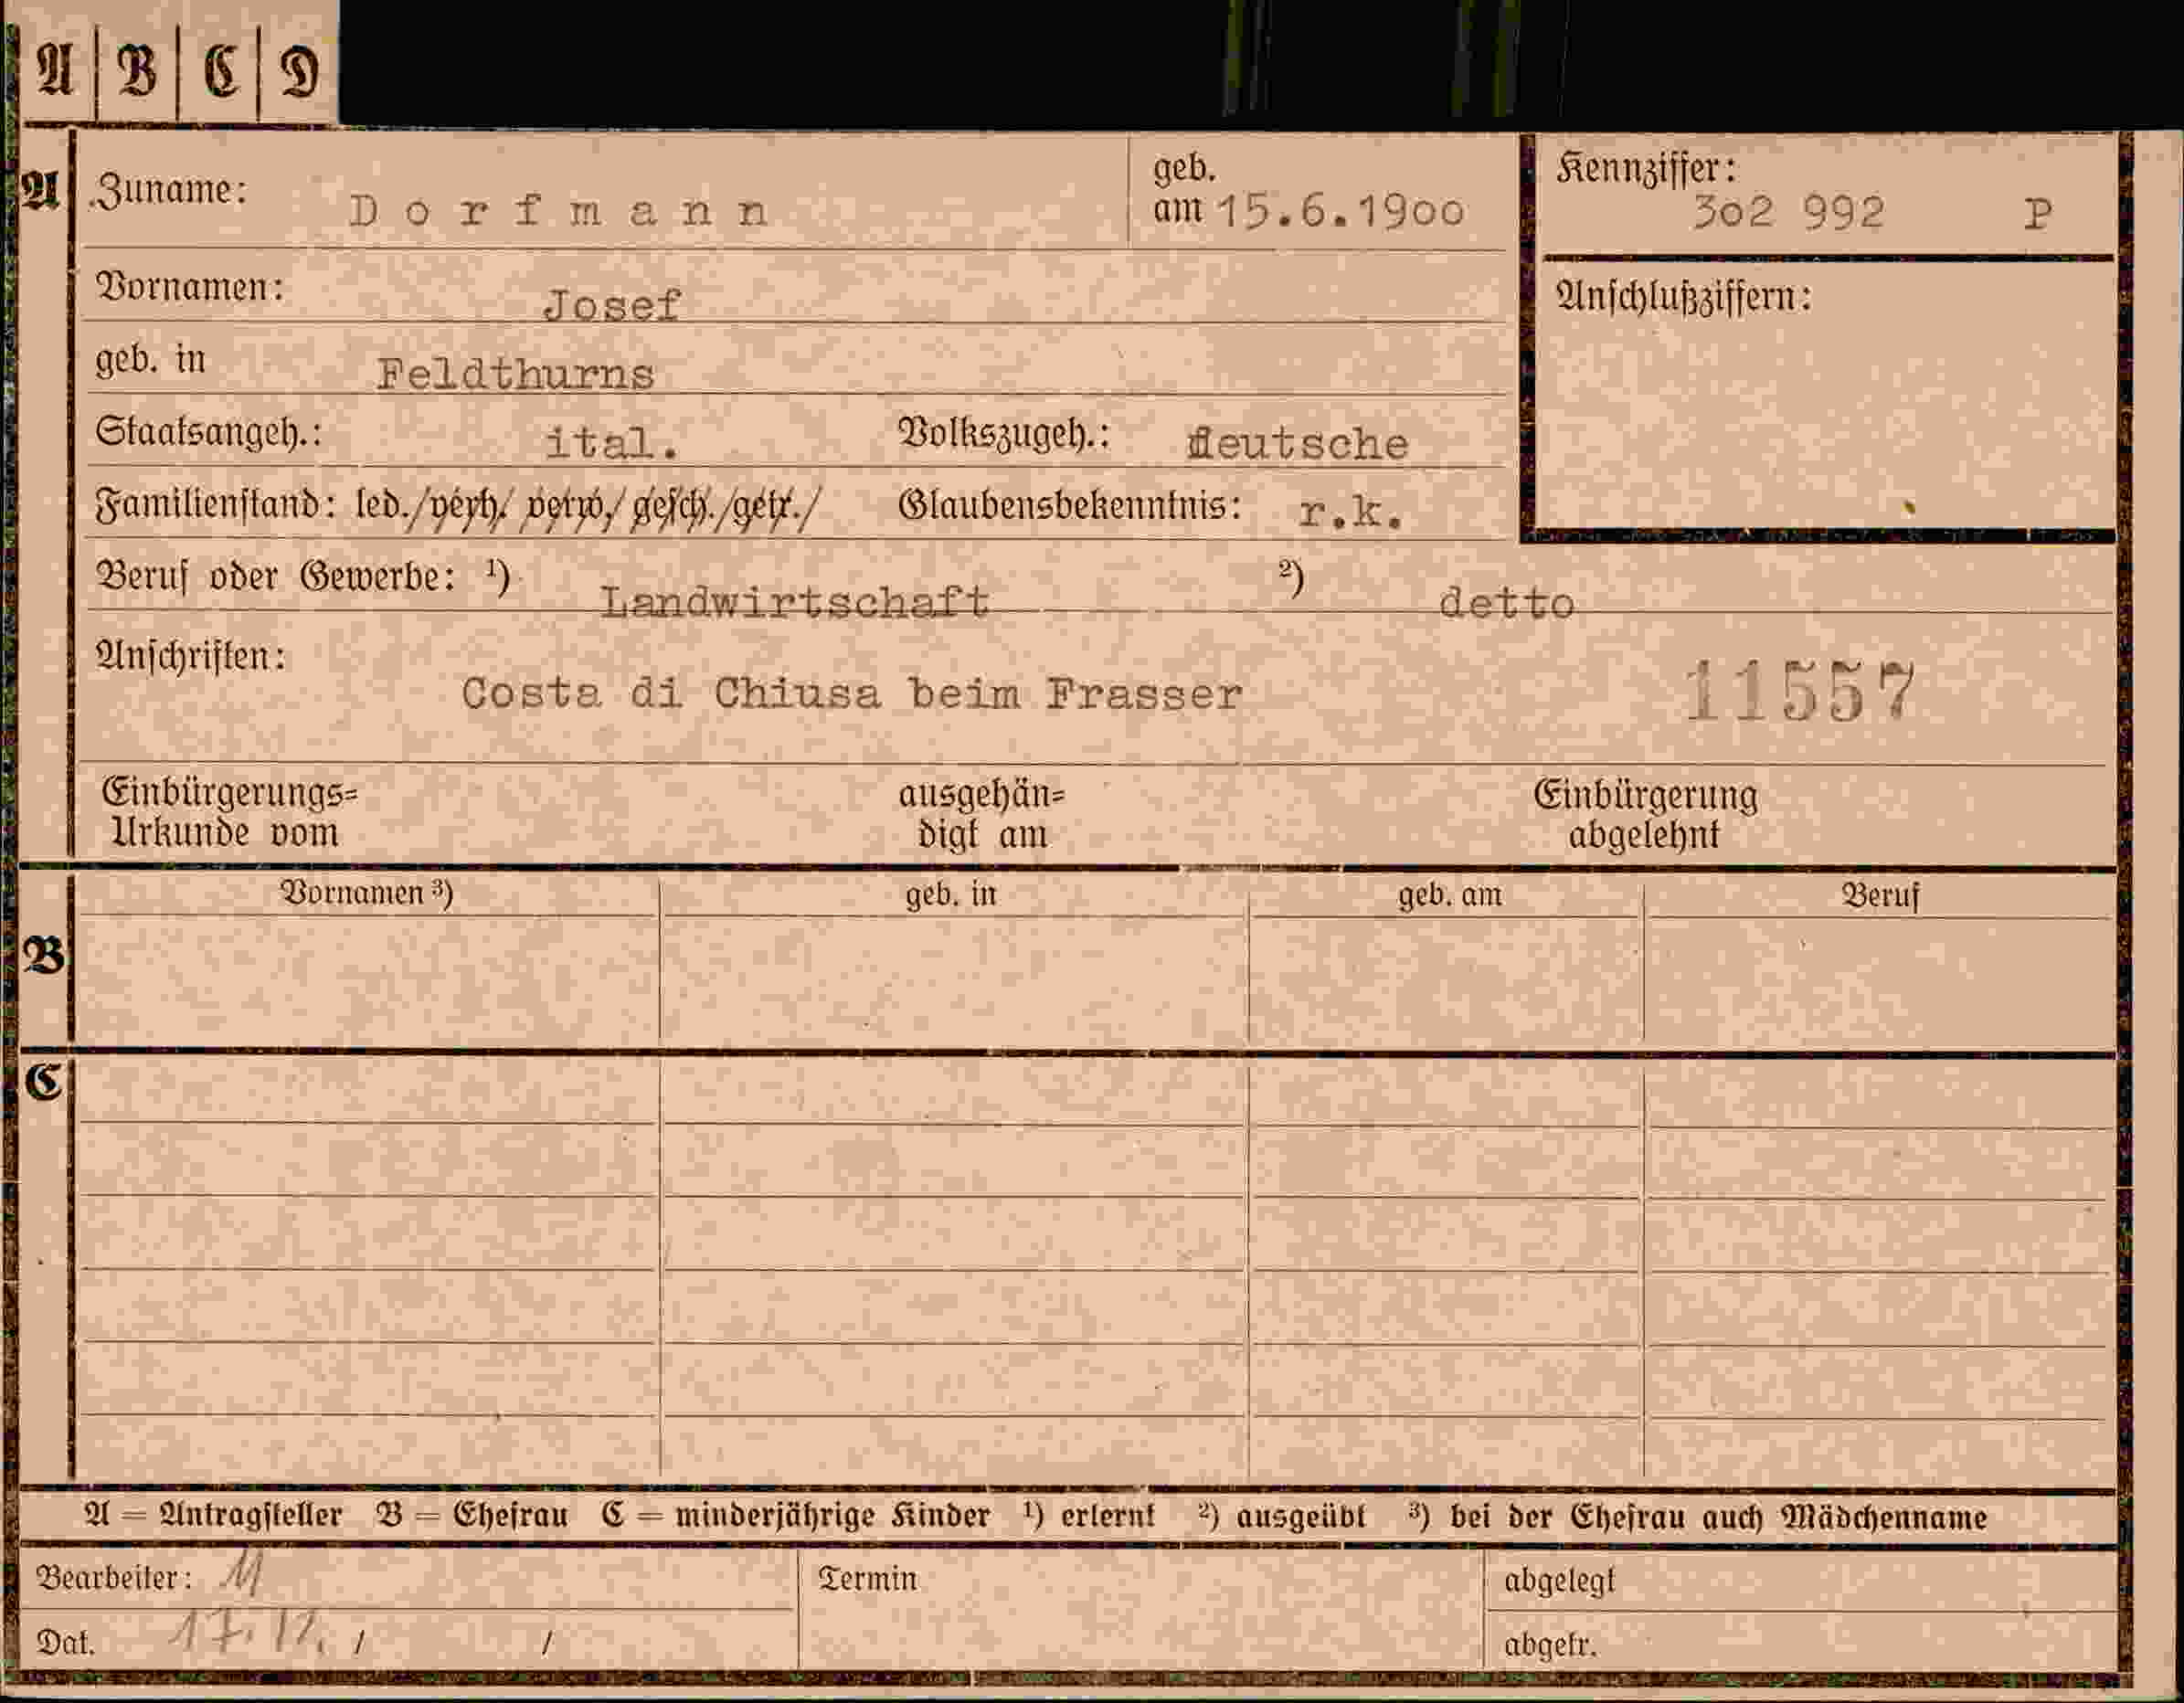 A | B | C | D
A Zuname: Dorfmann geb. am 15.6.1900 Kennziffer: 302 992 P
Vornamen: Josef Anschlußziffern:
geb. in Feldthurns
Staatsangeh.: ital. Volkszugeh.: deutsche
Familienstand: led./verh./verw./gesch./getr./ Glaubensbekenntnis: r.k.
Beruf oder Gewerbe: ¹) Landwirtschaft ²) detto
Anschriften: Costa di Chiusa beim Frasser 11557
Einbürgerungs= ausgehän= Einbürgerung
Urkunde vom digt am abgelehnt
Vornamen ³) geb. in geb. am Beruf
B
C
A = Antragsteller B = Ehefrau C = minderjährige Kinder ¹) erlernt ²) ausgeübt ³) bei der Ehefrau auch Mädchenname
Bearbeiter: Termin abgelegt
Dat. 17.12. / / abgetr.